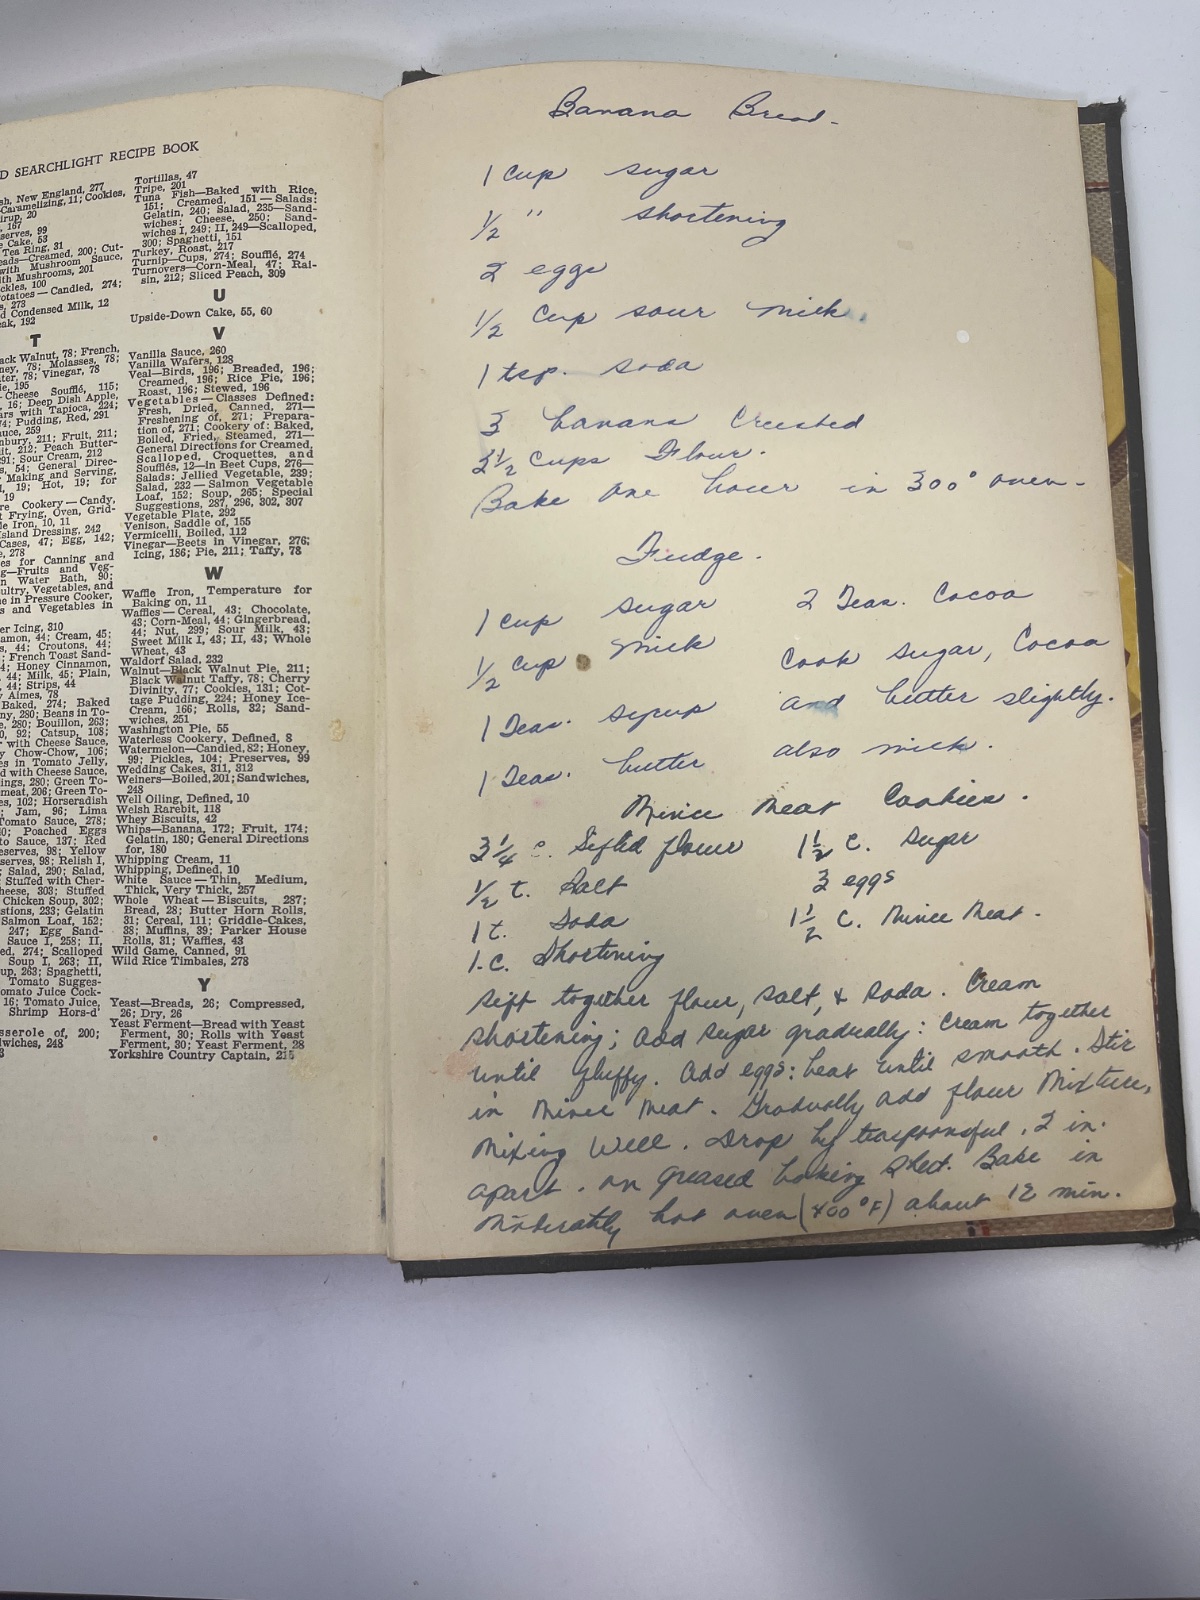 D SEARCHLIGHT RECIPE BOOK
sh, New England, 277
Caramelizing, 11; Cookies,
irup, 20
, 167
serves, 99
e Cake, 53
Tea Ring, 31
eads—Creamed, 200; Cut-
with Mushroom Sauce,
ith Mushrooms, 201
ckles, 100
otatoes—Candied, 274;
s, 273
d Condensed Milk, 12
eak, 192
T
ack Walnut, 78; French,
ney, 78; Molasses, 78;
ter, 78; Vinegar, 78
ie, 195
Cheese Soufflé, 115;
, 16; Deep Dish Apple,
ars with Tapioca, 224;
74; Pudding, Red, 291
auce, 259
nbury, 211; Fruit, 211;
it, 212; Peach Butter-
291; Sour Cream, 212
s, 54; General Direc-
Making and Serving,
l, 19; Hot, 19; for
19
re Cookery—Candy,
t Frying, Oven, Grid-
le Iron, 10, 11
Island Dressing, 242
Cases, 47; Egg, 142;
e, 278
es for Canning and
g—Fruits and Veg-
n Water Bath, 90;
ultry, Vegetables, and
e in Pressure Cooker,
s and Vegetables in
er Icing, 310
amon, 44; Cream, 45;
s, 44; Croutons, 44;
; French Toast Sand-
4; Honey Cinnamon,
, 44; Milk, 45; Plain,
, 44; Strips, 44
y Aimes, 78
Baked, 274; Baked
ny, 280; Beans in To-
e, 280; Bouillon, 263;
0, 92; Catsup, 108;
r with Cheese Sauce,
Chow-Chow, 106;
es in Tomato Jelly,
d with Cheese Sauce,
ings, 280; Green To-
emeat, 206; Green To-
es, 102; Horseradish
; Jam, 96; Lima
Tomato Sauce, 278;
0; Poached Eggs
to Sauce, 137; Red
eserves, 98; Yellow
serves, 98; Relish I,
Salad, 290; Salad,
Stuffed with Cher-
heese, 303; Stuffed
Chicken Soup, 302;
stions, 233; Gelatin
Salmon Loaf, 152;
247; Egg Sand-
Sauce I, 258; II,
ed, 274; Scalloped
Soup I, 263; II,
up, 263; Spaghetti,
Tomato Sugges-
omato Juice Cock-
16; Tomato Juice,
Shrimp Hors-d'
sserole of, 200;
dwiches, 248
Tortillas, 47
Tripe, 201
Tuna Fish—Baked with Rice,
151; Creamed, 151—Salads:
Gelatin, 240; Salad, 235—Sand-
wiches: Cheese, 250; Sand-
wiches I, 249; II, 249—Scalloped,
300; Spaghetti, 151
Turkey, Roast, 217
Turnip—Cups, 274; Soufflé, 274
Turnovers—Corn-Meal, 47; Rai-
sin, 212; Sliced Peach, 309
U
Upside-Down Cake, 55, 60
V
Vanilla Sauce, 260
Vanilla Wafers, 128
Veal—Birds, 196; Breaded, 196;
Creamed, 196; Rice Pie, 196;
Roast, 196; Stewed, 196
Vegetables—Classes Defined:
Fresh, Dried, Canned, 271—
Freshening of, 271; Prepara-
tion of, 271; Cookery of: Baked,
Boiled, Fried, Steamed, 271—
General Directions for Creamed,
Scalloped, Croquettes, and
Soufflés, 12—in Beet Cups, 276—
Salads: Jellied Vegetable, 239;
Salad, 232—Salmon Vegetable
Loaf, 152; Soup, 265; Special
Suggestions, 287, 296, 302, 307
Vegetable Plate, 292
Venison, Saddle of, 155
Vermicelli, Boiled, 112
Vinegar—Beets in Vinegar, 276;
Icing, 186; Pie, 211; Taffy, 78
W
Waffle Iron, Temperature for
Baking on, 11
Waffles—Cereal, 43; Chocolate,
43; Corn-Meal, 44; Gingerbread,
44; Nut, 299; Sour Milk, 43;
Sweet Milk I, 43; II, 43; Whole
Wheat, 43
Waldorf Salad, 232
Walnut—Black Walnut Pie, 211;
Black Walnut Taffy, 78; Cherry
Divinity, 77; Cookies, 131; Cot-
tage Pudding, 224; Honey Ice-
Cream, 166; Rolls, 32; Sand-
wiches, 251
Washington Pie, 55
Waterless Cookery, Defined, 8
Watermelon—Candied, 82; Honey,
99; Pickles, 104; Preserves, 99
Wedding Cakes, 311, 312
Weiners—Boiled, 201; Sandwiches,
248
Well Oiling, Defined, 10
Welsh Rarebit, 118
Whey Biscuits, 42
Whips—Banana, 172; Fruit, 174;
Gelatin, 180; General Directions
for, 180
Whipping Cream, 11
Whipping, Defined, 10
White Sauce—Thin, Medium,
Thick, Very Thick, 257
Whole Wheat—Biscuits, 287;
Bread, 28; Butter Horn Rolls,
31; Cereal, 111; Griddle-Cakes,
38; Muffins, 39; Parker House
Rolls, 31; Waffles, 43
Wild Game, Canned, 91
Wild Rice Timbales, 278
Y
Yeast—Breads, 26; Compressed,
26; Dry, 26
Yeast Ferment—Bread with Yeast
Ferment, 30; Rolls with Yeast
Ferment, 30; Yeast Ferment, 28
Yorkshire Country Captain, 215
Banana Bread.
1 cup sugar
1/2 " shortening
2 eggs
1/2 cup sour milk.
1 tsp. soda
3 banana Crushed
2 1/2 cups Flour.
Bake one hour in 300° oven.
Fudge.
1 cup sugar
1/2 cup milk
1 Teas. syrup
1 Teas. butter
2 Teas. Cocoa
Cook sugar, Cocoa
and butter slightly.
also milk.
Mince Meat Cookies.
3 1/4 c. Sifted flour
1/2 t. Salt
1 t. Soda
1-c. Shortening
1 1/2 c. Sugar
3 eggs
1 1/2 c. Mince Meat.
Sift together flour, salt, & soda. Cream
shortening; add sugar gradually: cream together
until fluffy. Add eggs: beat until smooth. Stir
in Mince Meat. Gradually add flour mixture,
mixing well. Drop by teaspoonsful. 2 in.
apart. on greased baking sheet. Bake in
moderately hot oven (400°F) about 12 min.